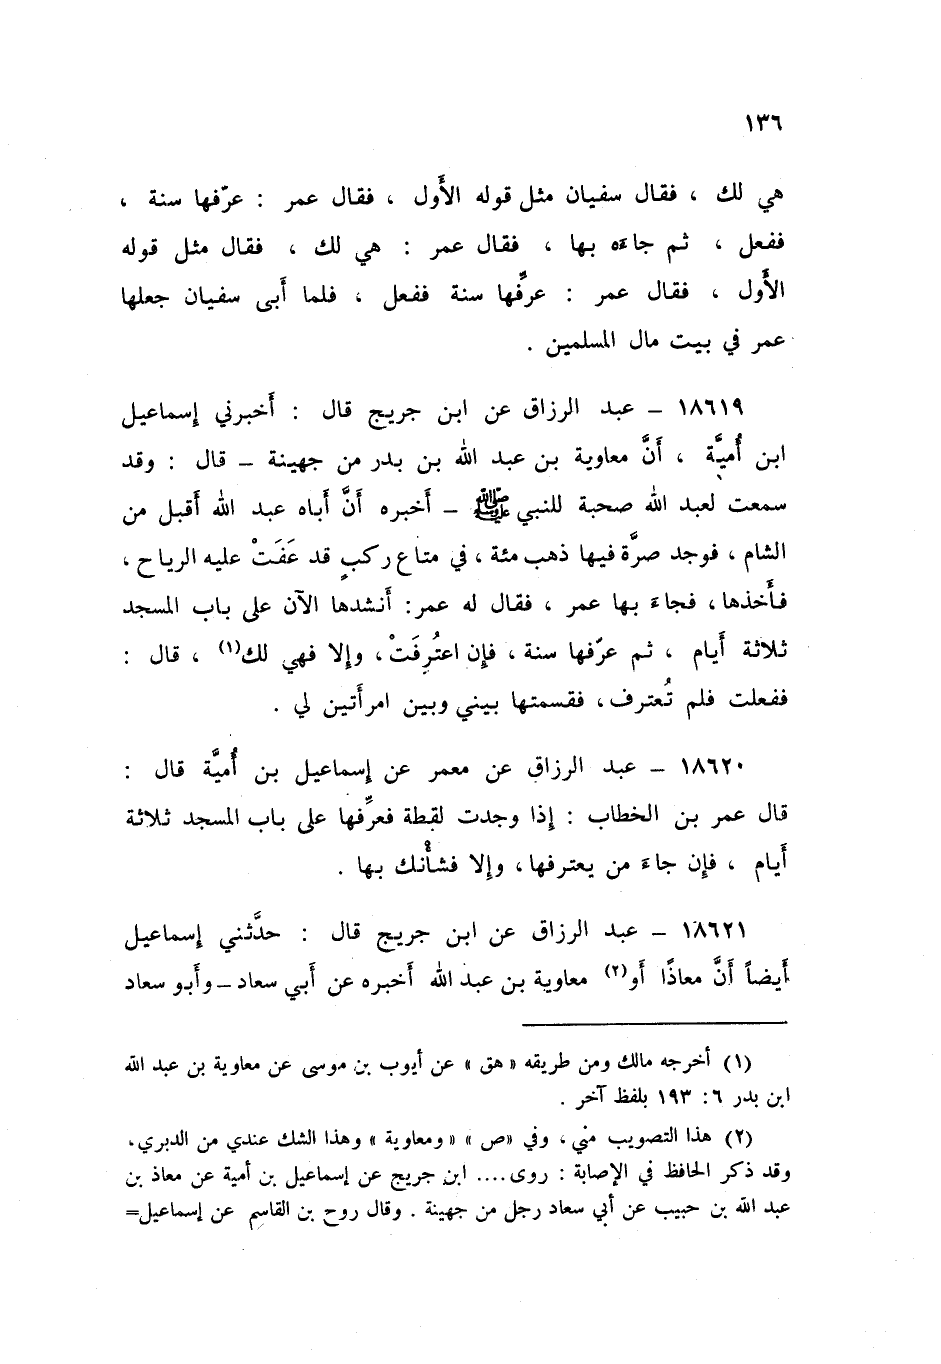 ١٣٦
هي لك ، فقال سفيان مثل قوله الأَول ، فقال عمر : عرّفها سنة ،
ففعل ، ثم جاءَه بها ، فقال عمر : هي لك ، فقال مثل قوله
الأَول ، فقال عمر : عرِّفها سنة ففعل ، فلما أَبى سفيان جعلها
عمر في بيت مال المسلمين .
١٨٦١٩ ـ عبد الرزاق عن ابن جريج قال : أَخبرني إسماعيل
ابن أُميَّة ، أَنَّ معاوية بن عبد الله بن بدر من جهينة ـ قال : وقد
سمعت لعبد الله صحبة للنبي ﷺ ـ أَخبره أَنَّ أَباه عبد الله أَقبل من
الشام ، فوجد صرَّة فيها ذهب مئة ، في متاع ركبٍ قد عَفَتْ عليه الرياح ،
فأَخذها ، فجاءَ بها عمر ، فقال له عمر : أَنشدها الآن على باب المسجد
ثلاثة أَيام ، ثم عرّفها سنة ، فإن اعتُرِفَتْ ، وإلا فهي لك(١) ، قال :
ففعلت فلم تُعترف ، فقسمتها بيني وبين امرأَتين لي .
١٨٦٢٠ ـ عبد الرزاق عن معمر عن إسماعيل بن أُميَّة قال :
قال عمر بن الخطاب : إذا وجدت لقطة فعرِّفها على باب المسجد ثلاثة
أَيام ، فإن جاءَ من يعترفها ، وإلا فشأْنك بها .
١٨٦٢١ ـ عبد الرزاق عن ابن جريج قال : حدَّثني إسماعيل
أَيضاً أَنَّ معاذًا أَو(٢) معاوية بن عبد الله أَخبره عن أَبي سعاد ـ وأَبو سعاد
(١) أخرجه مالك ومن طريقه « هق » عن أيوب بن موسى عن معاوية بن عبد الله
ابن بدر ٦ : ١٩٣ بلفظ آخر .
(٢) هذا التصويب مني ، وفي «ص » « ومعاوية » وهذا الشك عندي من الدبري ،
وقد ذكر الحافظ في الإصابة : روى .... ابن جريج عن إسماعيل بن أمية عن معاذ بن
عبد الله بن حبيب عن أبي سعاد رجل من جهينة . وقال روح بن القاسم عن إسماعيل=